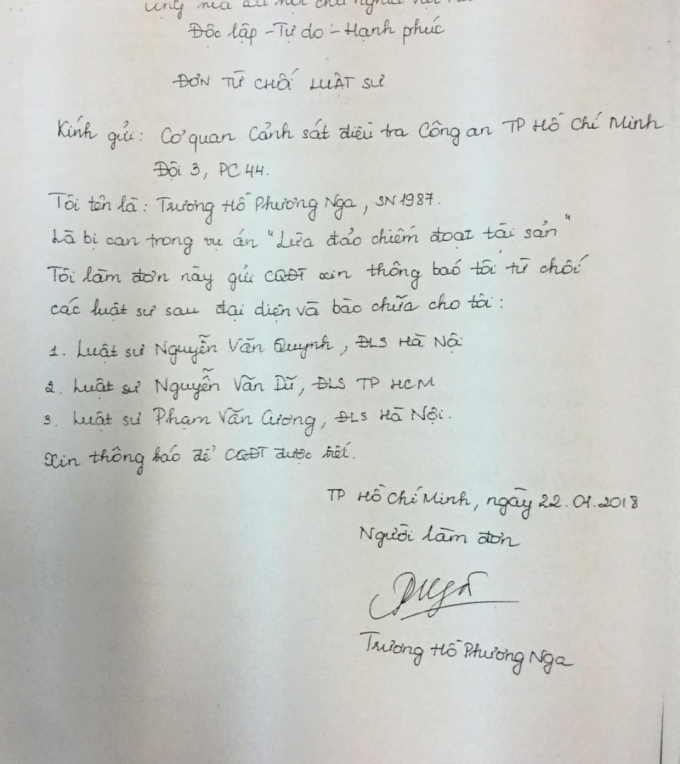 Cộng hòa xã hội chủ nghĩa Việt Nam
Độc lập - Tự do - Hạnh phúc
ĐƠN TỪ CHỐI LUẬT SƯ
Kính gửi: Cơ quan Cảnh sát điều tra Công an TP Hồ Chí Minh
Đội 3, PC 44.
Tôi tên là: Trương Hồ Phương Nga, SN 1987.
Là bị can trong vụ án "Lừa đảo chiếm đoạt tài sản"
Tôi làm đơn này gửi CQĐT xin thông báo tôi từ chối
các luật sư sau đại diện và bào chữa cho tôi:
1. Luật sư Nguyễn Văn Quynh, ĐLS Hà Nội
2. Luật sư Nguyễn Văn Dũ, ĐLS TP HCM
3. Luật sư Phạm Văn Cương, ĐLS Hà Nội.
Xin thông báo để CQĐT được biết.
TP Hồ Chí Minh, ngày 22.01.2018
Người làm đơn
Nga
Trương Hồ Phương Nga